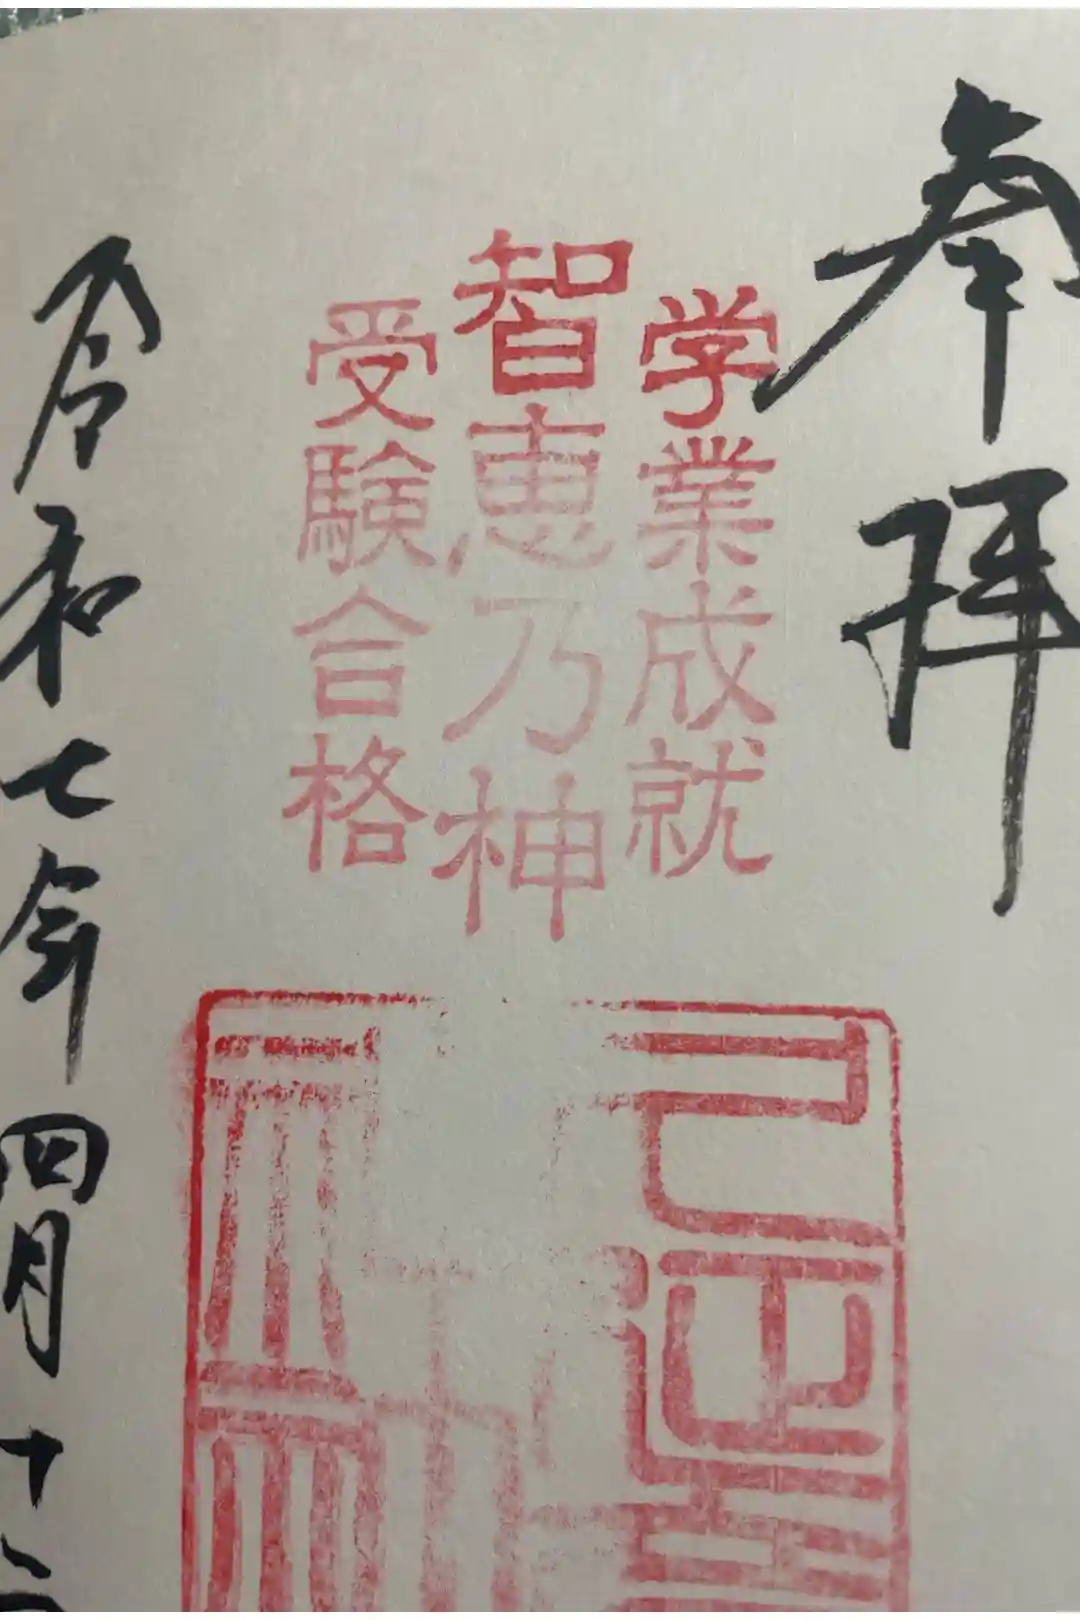 奉拝
学業成就
智恵乃神
受験合格
令和七年四月十二